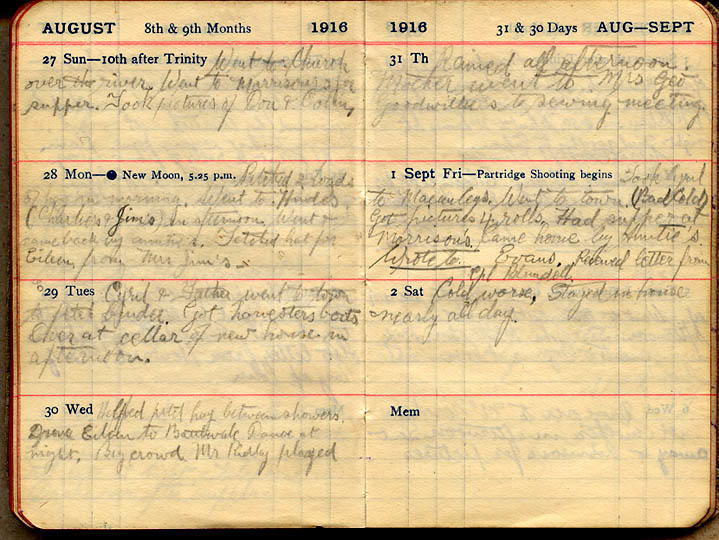 AUGUST 8th & 9th Months 1916
27 Sun—10th after Trinity Went to Church
over the river. Went to Morrison's for
supper. Took pictures of Don &
28 Mon—● New Moon, 5.25 p.m. Pitched 2 loads
of in morning. Went to Hindes
(Charlie's & Jim's) in afternoon. Went &
came back by Auntie's. Fetched hat for
Eileen from Mrs Jim's—
29 Tues Cyril & Father went to town
to fetch binder. Got harvesters boots
Over at cellar of new house in
afternoon.
30 Wed Helped pitch hay between showers.
Drove Eileen to Dance at
night. Big crowd. Mr Ridley played
1916 31 & 30 Days AUG—SEPT
31 Th Rained all afternoon.
Mother went to Mrs Geo
Goodwillie's to sewing meeting.
1 Sept Fri—Partridge Shooting begins Took Cyril
to Macauleys. Went to town. (Bad Cold)
Got pictures 4 rolls. Had supper at
Morrison's. Came home by Auntie's
Wrote to Evans. Received letter from
Cpl Blundell
2 Sat Cold worse, Stayed in house
nearly all day.
Mem